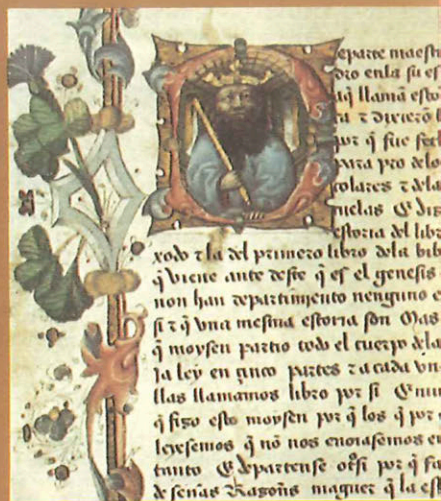 eparte maestr
dro enla su es
aq̃ llamã esto
ra ⁊ dixierõ l
por q̃ fue fech
para pro delos
colares ⁊ dela
uelas E diz
estoria del libr
xodo ⁊ la del primero libro dela bib
q̃ viene ante deste q̃ es el genesis
non han departimiento nenguno e
si ⁊ q̃ vna mesma estoria son Mas
q̃ moysen partio todo el cuerpo dela
la ley en cinco partes ⁊ a cada vn
llas llamamos libro por si E
q̃ fizo esto moysen por q̃ los q̃ por
leyesemos q̃ nõ nos enoiasemos en
tanto E departense otsi por q̃ fa
de senas Razoñs maguer q̃ la est